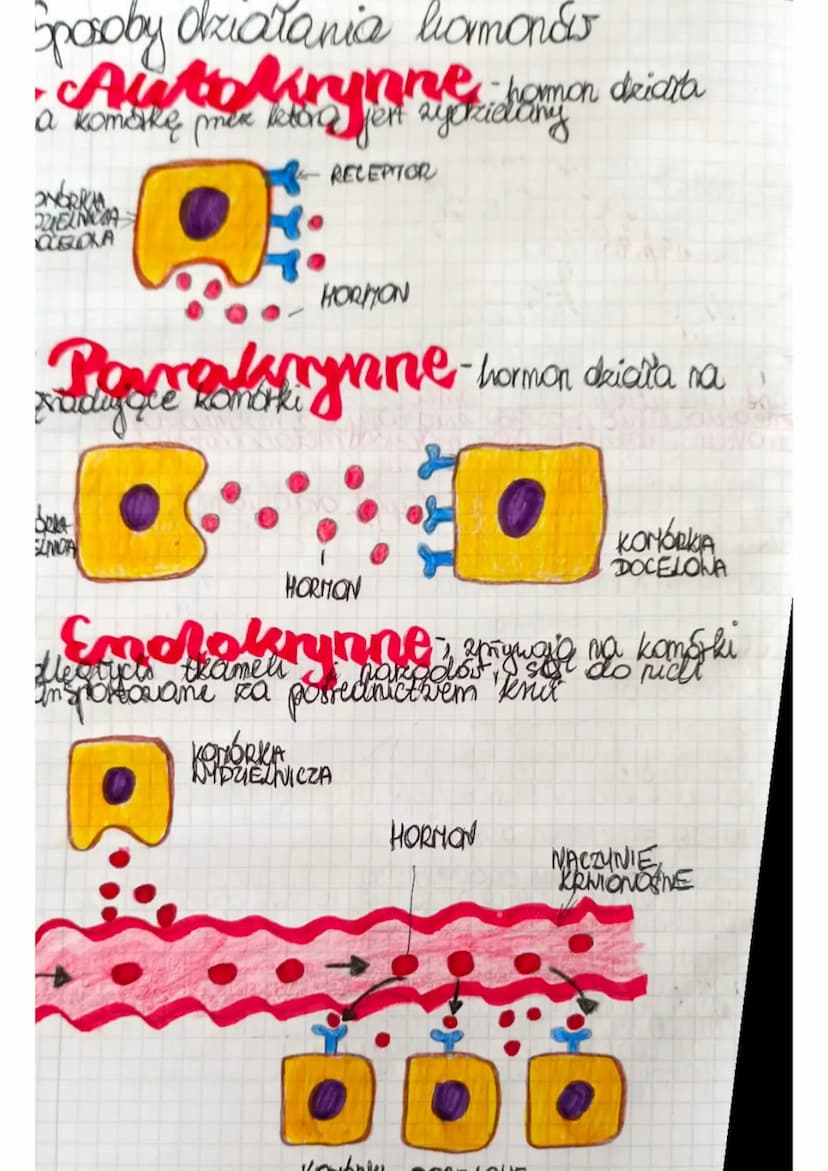 Sposoby działania hormonów
- Autokrynne - hormon działa
a komórkę przez którą jest wydzielany
RECEPTOR
OMÓRKA
DZIELNICZA
OCELOWA
HORMON
Parakrynne - hormon działa na
komórki
HORMON
KOMÓRKA
DOCELOWA
Endokrynne - wpływają na komórki
tkanek i narządów, są do nich
ansportowane za pośrednictwem krwi
KOMÓRKA
WYDZIELNICZA
HORMON
NACZYNIE
KRWIONOŚNE